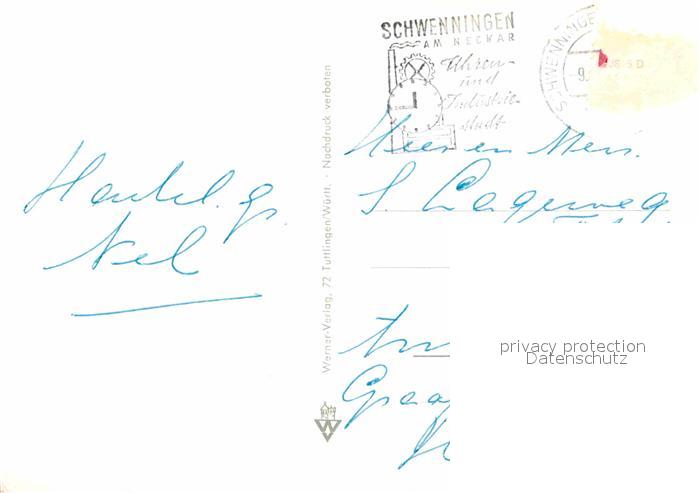 SCHWENNINGEN
AM NECKAR
Uhren-
und
Industrie-
stadt
SCHWENNINGE
-9.
Hartel. gr.
Nel
Werner-Verlag, 72 Tuttlingen/Württ. · Nachdruck verboten
W
Heer en Mevr.
S. Lagerweg
privacy protection
Datenschutz